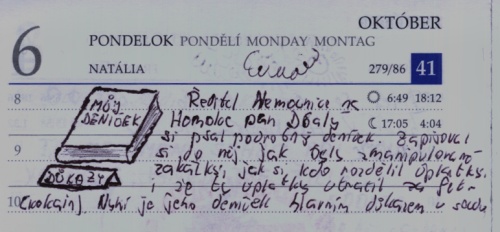 OKTÓBER
6
PONDELOK PONDĚLÍ MONDAY MONTAG
NATÁLIA
279/86 41
8
MŮJ
DENÍČEK
Ředitel Nemocnice na
6:49 18:12
Homolce pan Dbalý
17:05 4:04
si psal podrobný deníček. Zapisoval
9
si do něj jak byly zmanipulované
zakázky, jak si, kdo rozdělil úplatky.
DŮKAZY
i že ty úplatky utratil za
10
(kokain). Nyní je jeho deníček hlavním důkazem u soudu